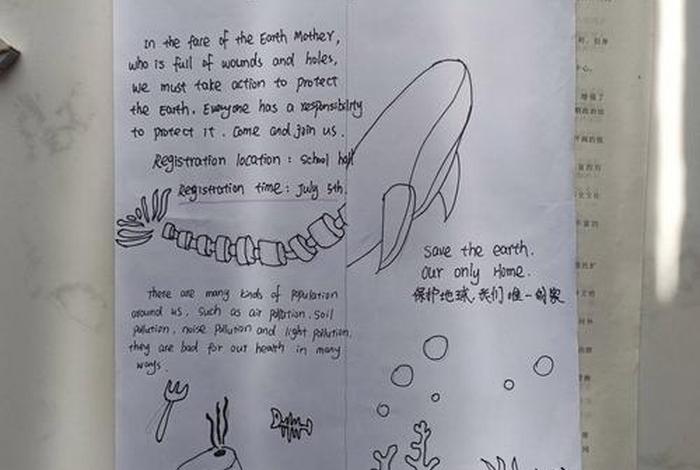 In the fare of the Earth Mother,
who is full of wounds and holes,
we must take action to protect
the Earth. Everyone has a responsibility
to protect it. Come and join us.
Registration location : School hall
Registration time : July 5th.
Save the earth.
Our only Home.
保护地球,我们唯一的家
There are many kinds of population
around us, such as air pollution, soil
pollution, noise pollution and light pollution,
they are bad for our health in many
ways.